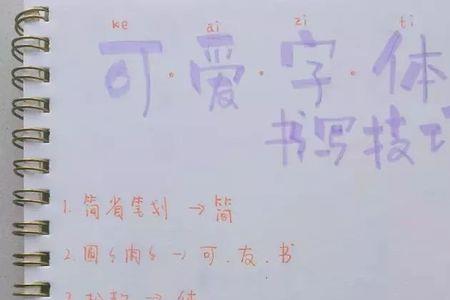 ke ai zi ti
可·爱·字·体
书写技巧
1. 简省笔划 → 简
2. 圆く肉く → 可.友.书
3. 松款 → 体